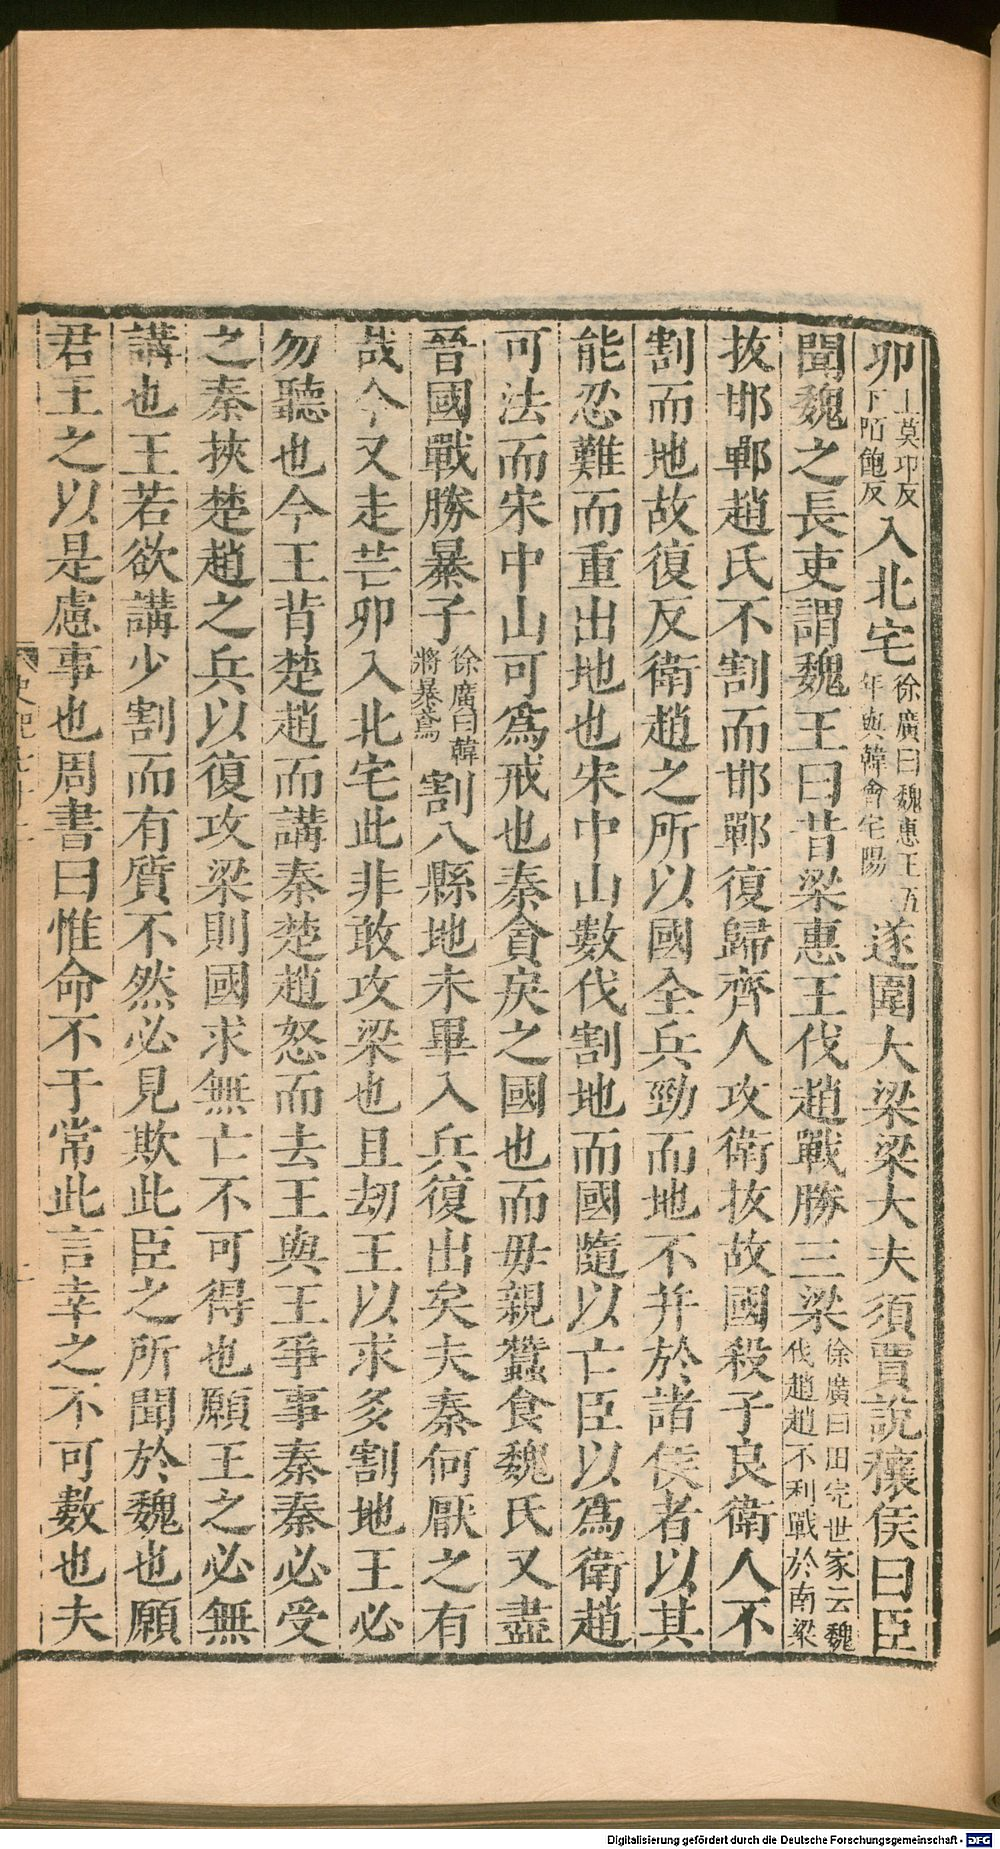 卯上莫卬反下陌飽反入北宅徐廣曰魏惠王五年與韓會宅陽遂圍大梁梁大夫須賈說穰侯曰臣
聞魏之長吏謂魏王曰昔梁惠王伐趙戰勝三梁徐廣曰田完世家云魏伐趙趙不利戰於南梁
拔邯鄲趙氏不割而邯鄲復歸齊人攻衛拔故國殺子良衛人不
割而地故復反衛趙之所以國全兵勁而地不并於諸侯者以其
能忍難而重出地也宋中山數伐割地而國隨以亡臣以爲衛趙
可法而宋中山可爲戒也秦貪戾之國也而毋親蠶食魏氏又盡
晉國戰勝暴子徐廣曰韓將暴鳶割八縣地未畢入兵復出矣夫秦何厭之有
哉今又走芒卯入北宅此非敢攻梁也且劫王以求多割地王必
勿聽也今王背楚趙而講秦楚趙怒而去王與王爭事秦秦必受
之秦挾楚趙之兵以復攻梁則國求無亡不可得也願王之必無
講也王若欲講少割而有質不然必見欺此臣之所聞於魏也願
君王之以是慮事也周書曰惟命不于常此言幸之不可數也夫
Digitalisierung gefördert durch die Deutsche Forschungsgemeinschaft - DFG